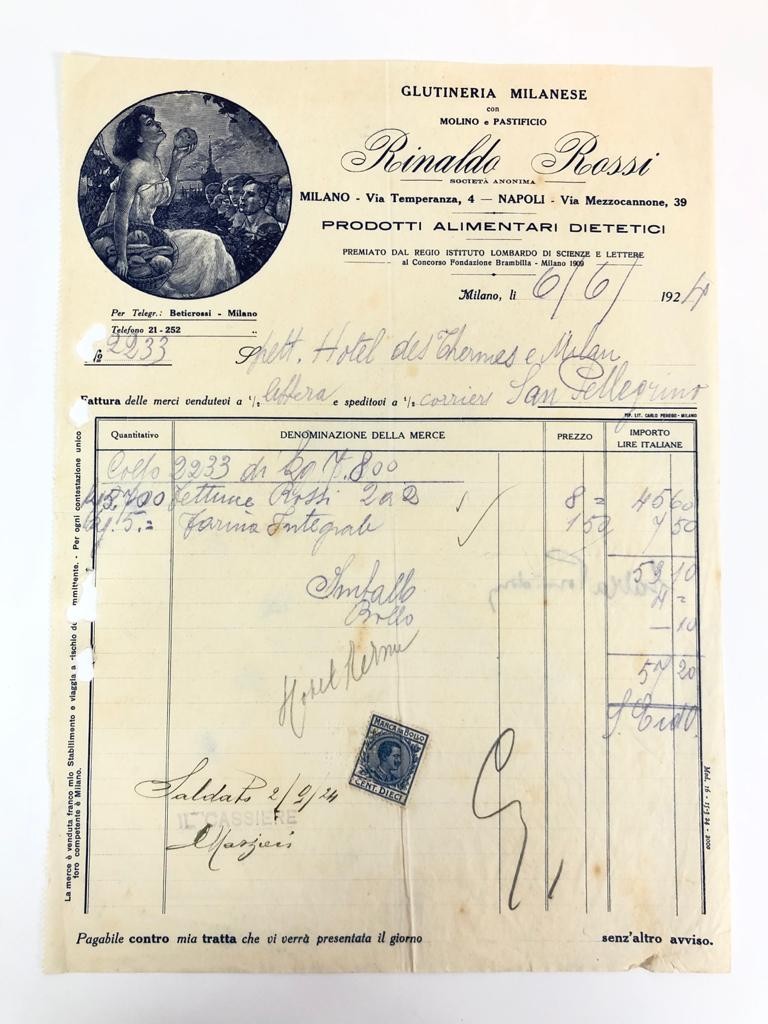 GLUTINERIA MILANESE
con
MOLINO e PASTIFICIO
Rinaldo Rossi
SOCIETÀ ANONIMA
MILANO - Via Temperanza, 4 — NAPOLI - Via Mezzocannone, 39
PRODOTTI ALIMENTARI DIETETICI
PREMIATO DAL REGIO ISTITUTO LOMBARDO DI SCIENZE E LETTERE
al Concorso Fondazione Brambilla - Milano 1909
Milano, li 6/6/ 1924
Per Telegr.: Beticrossi - Milano
Telefono 21-252
N. 2233
Spett. Hotel des Thermes e Milan
San Pellegrino
Fattura delle merci vendutevi a ½ lettera e speditovi a ½ corriere
TIP. LIT. CARLO PEREGO - MILANO
Quantitativo DENOMINAZIONE DELLA MERCE PREZZO IMPORTO LIRE ITALIANE
Collo 2233 di Kg 7.800
Fettucce Rossi 8 = 45 60
Kg. 5.= Farina Integrale 1 50 7 50
53 10
Imballo 4 =
Bollo — 10
57 20
MARCA DA BOLLO
CENT. DIECI
Saldato 2/9/24
IL CASSIERE
La merce è venduta franco mio Stabilimento e viaggia a rischio del committente. - Per ogni contestazione unico
foro competente è Milano.
Mod. 16 - 15-3-24 - 2000
Pagabile contro mia tratta che vi verrà presentata il giorno senz'altro avviso.